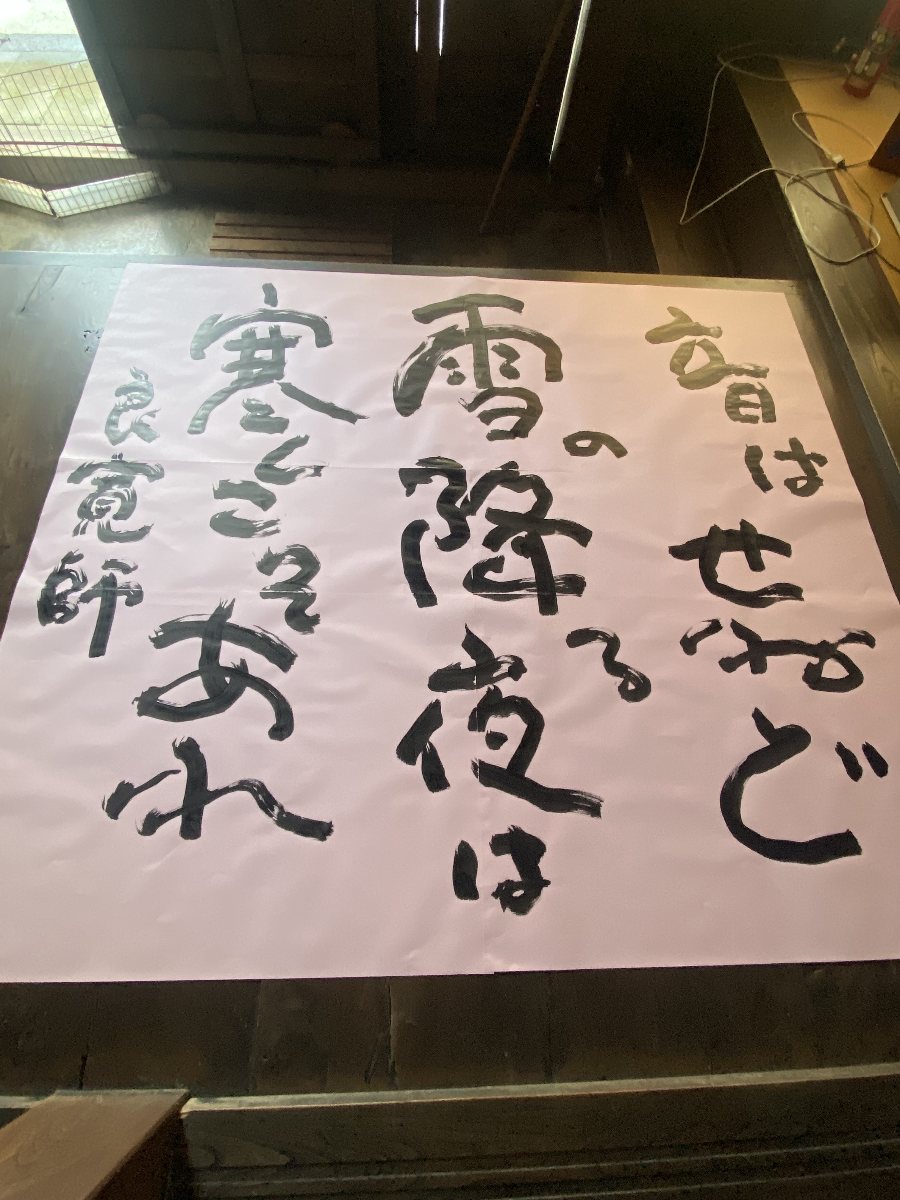 音はせねど
雪の降る夜は
寒くこそあれ
良寛師